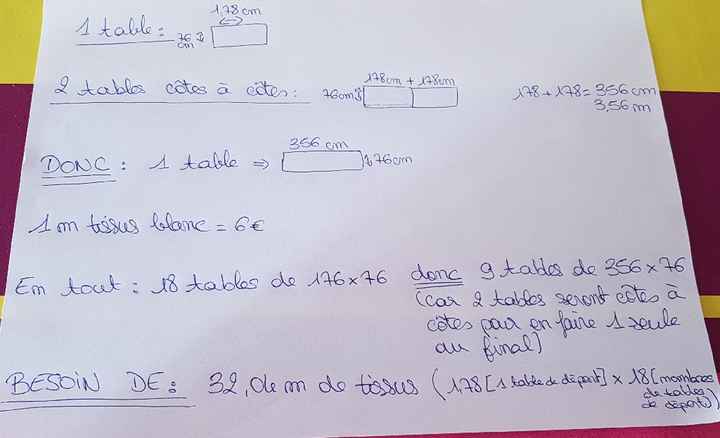 1,78 cm
1 table : 76 cm
2 tables côtes à côtes : 76cm 178cm + 178cm 178 + 178 = 356 cm
3,56 m
DONC : 1 table ⇒ 356 cm 76cm
1 m tissus blanc = 6€
En tout : 18 tables de 176 x 76 donc 9 tables de 356 x 76
(car 2 tables seront côtes à
côtes pour en faire 1 seule
au final)
BESOIN DE : 32,04 m de tissus (1,78 [1 table de départ] x 18 [nombres
de tables
de départ])